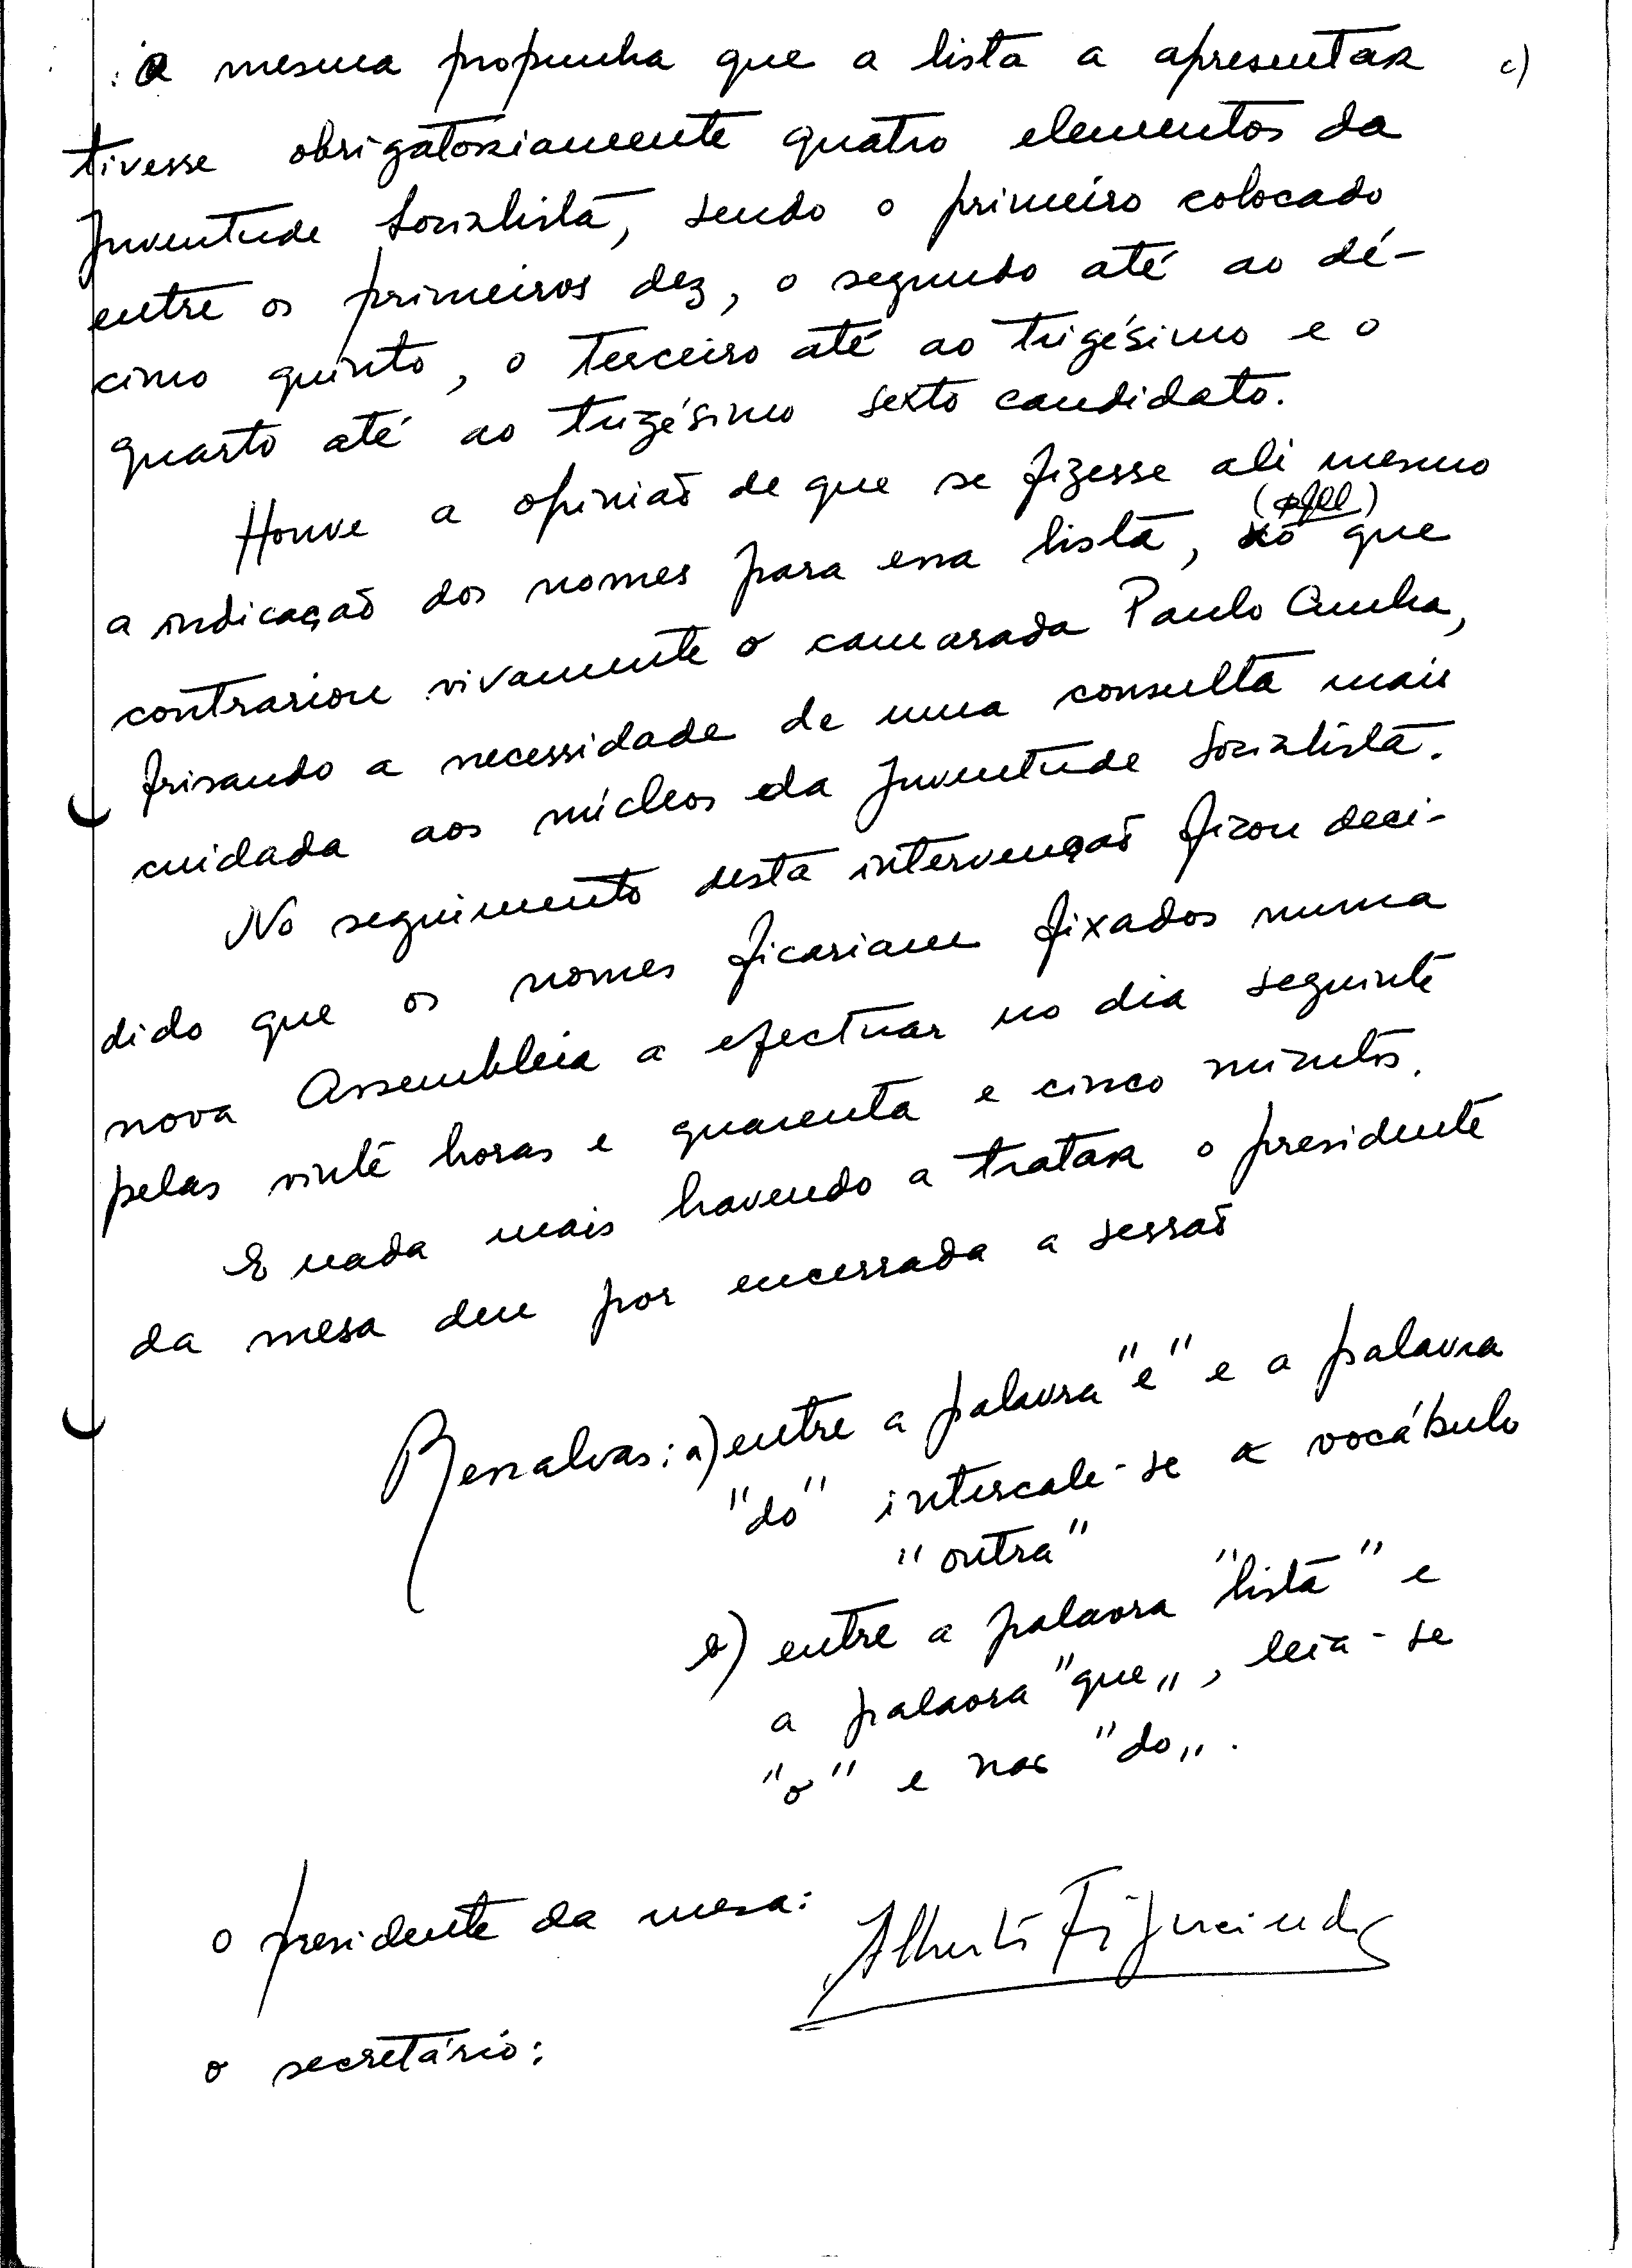 a mesma propunha que a lista a apresentar c)
tivesse obrigatoriamente quatro elementos da
Juventude Socialista, sendo o primeiro colocado
entre os primeiros dez, o segundo até ao dé-
cimo quinto, o terceiro até ao trigésimo e o
quarto até ao trigésimo sexto candidato.
Houve a opinião de que se fizesse ali mesmo
a indicação dos nomes para essa lista, que
contrariou vivamente o camarada Paulo Cunha,
frisando a necessidade de uma consulta mais
cuidada aos núcleos da Juventude Socialista.
No seguimento desta intervenção ficou deci-
dido que os nomes ficariam fixados numa
nova Assembleia a efectuar no dia seguinte
pelas vinte horas e quarenta e cinco minutos.
E nada mais havendo a tratar o presidente
da mesa deu por encerrada a sessão
Ressalvas: a) entre a palavra "e" e a palavra
"do" intercale-se a vocábulo
"outra"
b) entre a palavra "lista" e
a palavra "que", leia-se
"o" e não "do".
O presidente da mesa: Alberto Figueiredo
O secretário: